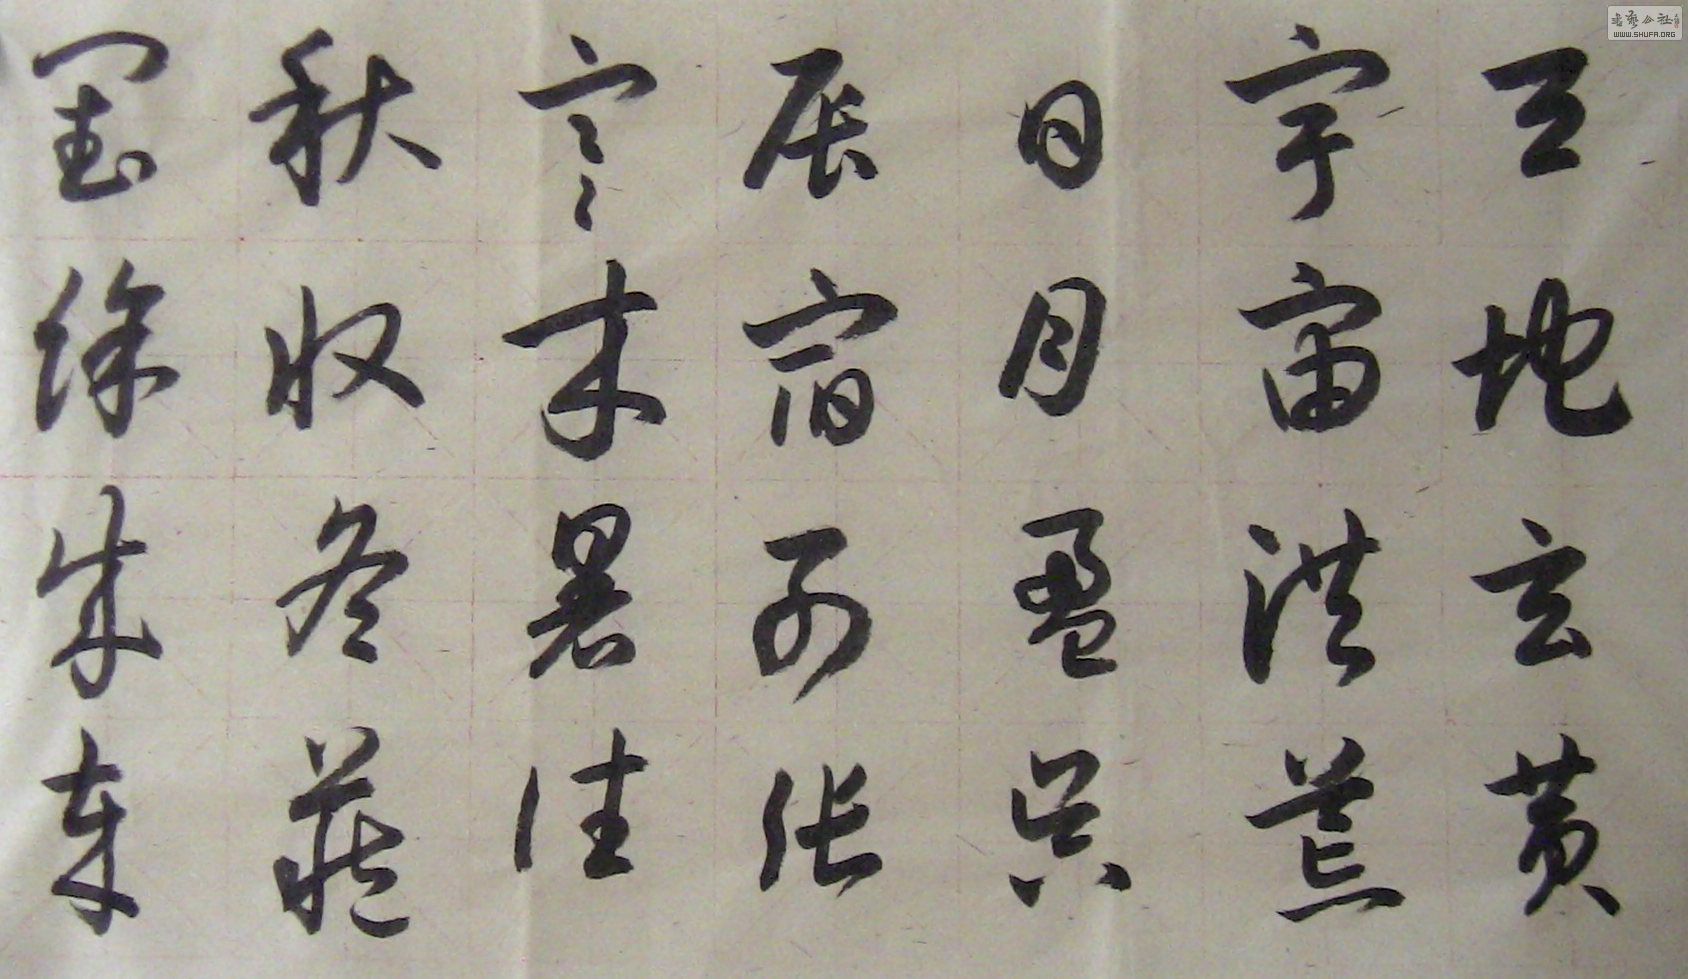 天地玄黄
宇宙洪荒
日月盈昃
辰宿列张
寒来暑往
秋收冬藏
闰馀成岁
書藝公社
WWW.SHUFA.ORG